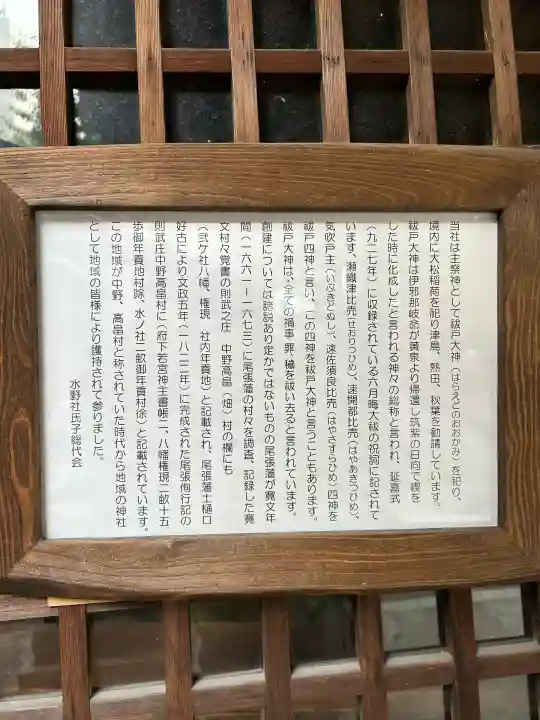 当社は主祭神として祓戸大神（はらえどのおおかみ）を祀り、
境内に大松稲荷を祀り津島、熱田、秋葉を勧請しています。
祓戸大神は伊邪那岐命が黄泉より帰還し筑紫の日向で禊を
した時に化成したと言われる神々の総称と言われ、延喜式
（九二七年）に収録されている六月晦大祓の祝詞に記されて
います、瀬織津比売（せおりつひめ）、速開都比売（はやあきつひめ）、
気吹戸主（いぶきどぬし）、速佐須良比売（はやさすらひめ）四神を
祓戸四神と言い、この四神を祓戸大神と言うこともあります。
祓戸大神は、全ての禍事・罪・穢を祓い去ると言われています。
創建については諸説あり定かではないものの尾張藩が寛文年
間（一六六一－一六七三）に尾張藩の村々を調査、記録した寛
文村々覚書の則武之庄　中野高畠（畑）村の欄にも
（弐ケ社八幡、権現　社内年貢地）と記載され、尾張藩士樋口
好古により文政五年（一八二二年）に完成された尾張徇行記の
則武庄中野高畠村に（府下若宮神主書帳ニ、八幡権現二畝十五
歩御年貢地村除、水ノ社二畝御年貢村徐）と記載されています。
この地域が中野、高畠村と称されていた時代から地域の神社
として地域の皆様により護持されて参りました。
水野社氏子総代会